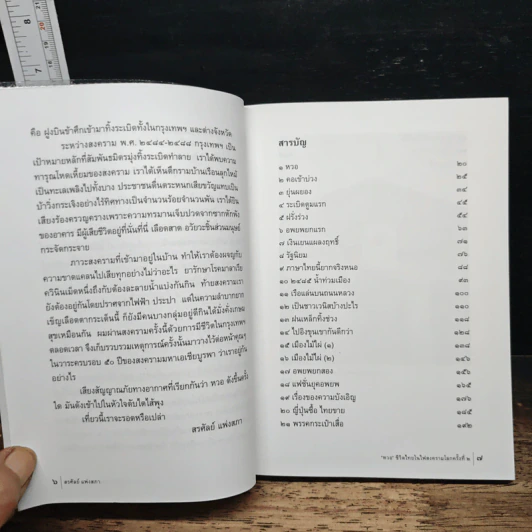 คือ ฝูงบินข้าศึกเข้ามาทิ้งระเบิดทั้งในกรุงเทพฯ และต่างจังหวัด
ระหว่างสงคราม พ.ศ. ๒๔๘๔-๒๔๘๘ กรุงเทพฯ เป็น
เป้าหมายหลักที่สัมพันธมิตรมุ่งทิ้งระเบิดทำลาย เราได้พบความ
ทารุณโหดเหี้ยมของสงคราม เราได้เห็นตึกรามบ้านเรือนลุกไหม้
เป็นทะเลเพลิงไปทั้งบาง ประชาชนตื่นตระหนกเสียขวัญแทบเป็น
บ้าวิ่งกระเจิงอย่างไร้ทิศทางเป็นจำนวนร้อยจำนวนพัน เราได้ยิน
เสียงร้องครวญครางเพราะความทรมานเจ็บปวดจากซากหักพัง
ของอาคาร มีผู้เสียชีวิตอยู่ที่นั่นที่นี่ เลือดสาด อวัยวะชิ้นส่วนมนุษย์
กระจัดกระจาย
ภาวะสงครามที่เข้ามาอยู่ในบ้าน ทำให้เราต้องผจญกับ
ความขาดแคลนไปเสียทุกอย่างไม่ว่าอะไร ยารักษาโรคมาลาเรีย
ควินินเม็ดหนึ่งถึงกับต้องละลายน้ำแบ่งกันกิน ท้ายสงครามเรา
ยังต้องอยู่กันโดยปราศจากไฟฟ้า ประปา แต่ในความลำบากยาก
เข็ญเลือดตากระเด็นนี้ ก็ยังมีคนบางกลุ่มอยู่ดีกินได้มั่งคั่งเกษม
สุขเหมือนกัน ผมผ่านสงครามครั้งนี้ด้วยการมีชีวิตในกรุงเทพฯ
ตลอดเวลา จึงเก็บรวบรวมเหตุการณ์ครั้งนั้นมาวางไว้ต่อหน้าคุณๆ
ในวาระครบรอบ ๕๐ ปีของสงครามมหาเอเชียบูรพา ว่าเราอยู่กัน
อย่างไร
เสียงสัญญาณภัยทางอากาศที่เรียกกันว่า หวอ ดังขึ้นครั้ง
ใด มันดังเข้าไปในหัวใจดับใดไส้พุง
เที่ยวนี้เราจะรอดหรือเปล่า
สรศัลย์ แพ่งสภา
๖ สรศัลย์ แพ่งสภา
สารบัญ
๑ หวอ ๒๐
๒ คอเข้าบ่วง ๒๕
๓ ยุ่นผยอง ๓๔
๔ ระเบิดตูมแรก ๔๕
๕ ฝรั่งร่วง ๕๔
๖ อพยพยกแรก ๖๓
๗ เงินเยนแผลงฤทธิ์ ๗๑
๘ รัฐนิยม ๗๗
๙ ภาษาไทยนี้ยากจริงหนอ ๘๘
๑๐ ๒๔๘๕ น้ำท่วมเมือง ๙๓
๑๑ เรือแล่นบนถนนหลวง ๑๐๐
๑๒ เป็นชาวเวนิสบ้างปะไร ๑๑๐
๑๓ ฝนเหล็กทิ้งช่วง ๑๑๘
๑๔ ไปอิงขุนเขากันดีกว่า ๑๒๘
๑๕ เมืองไม้ไผ่ (๑) ๑๓๘
๑๖ เมืองไม้ไผ่ (๒) ๑๔๖
๑๗ อพยพยกสอง ๑๕๖
๑๘ แฟชั่นยุคอพยพ ๑๖๕
๑๙ เรื่องของความบังเอิญ ๑๗๖
๒๐ ญี่ปุ่นซื้อ ไทยขาย ๑๘๕
๒๑ พรรคกระเป๋าเสื่อ ๑๙๒
"หวอ" ชีวิตไทยในไฟสงครามโลกครั้งที่ ๒ ๗
8
7